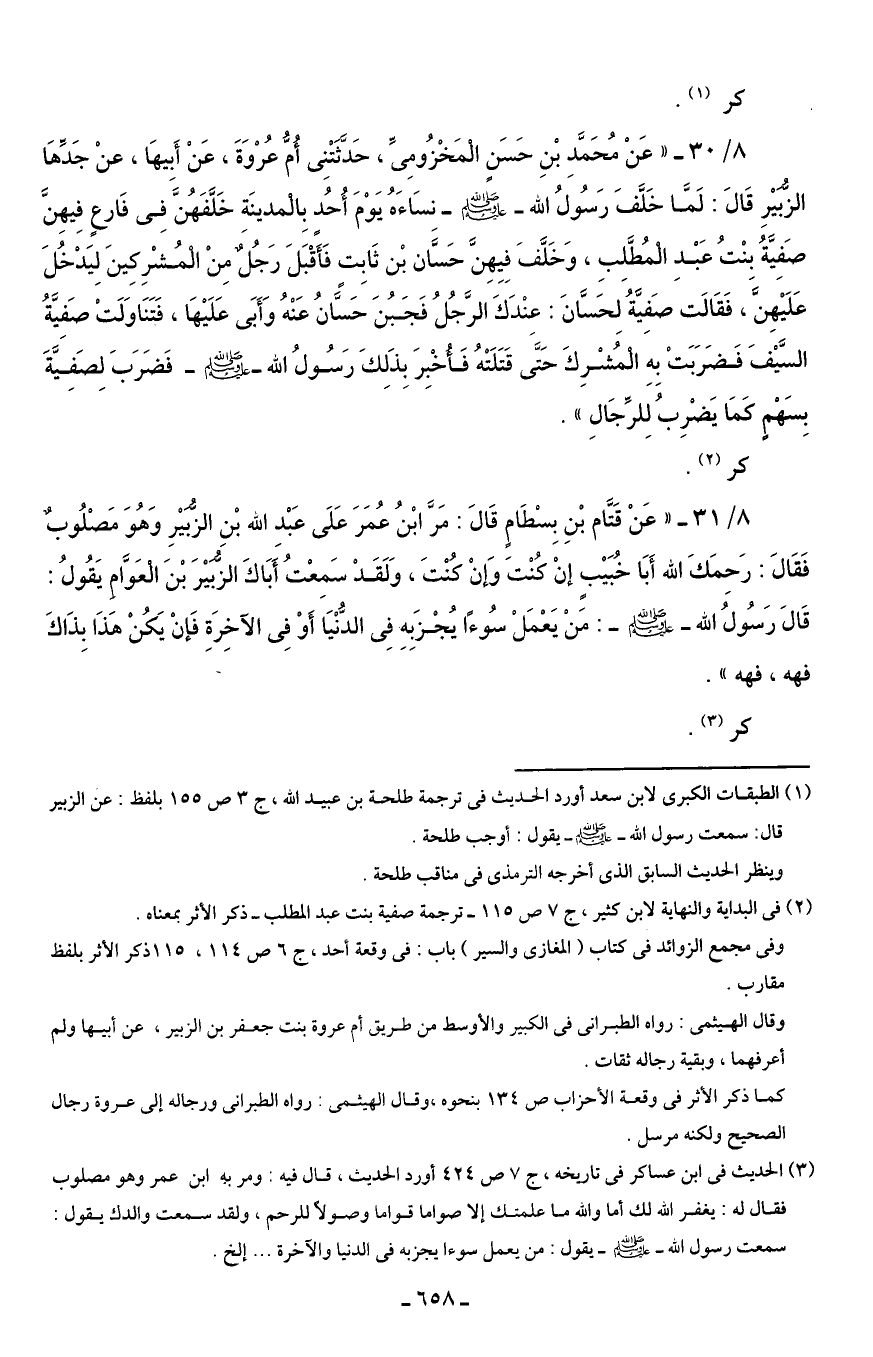 كر (١) .
٨/ ٣٠ ـ « عَنْ مُحَمَّدِ بْنِ حَسَنٍ الْمَخْزُومِىِّ ، حَدَّثَتْنِى أُمُّ عُرْوَةَ ، عَنْ أَبِيهَا ، عن جَدِّهَا
الزُّبَيْرِ قَالَ : لَمَّا خَلَّفَ رَسُولُ الله ـ ﷺ ـ نِسَاءَهُ يَوْمَ أُحُدٍ بِالْمدينَةِ خَلَّفَهُنَّ فِى فَارِعٍ فِيهِنَّ
صَفِيَّةُ بِنْتُ عَبْدِ الْمُطَّلِبِ ، وَخَلَّفَ فِيهِنَّ حَسَّان بْن ثَابِتٍ فَأَقْبَلَ رَجُلٌ مِنْ الْمُشْرِكِينَ لِيَدْخُلَ
عَلَيْهِنَّ ، فَقَالَت صَفِيَّةُ لِحَسَّانَ : عِنْدَكَ الرَّجُلُ فَجَبُنَ حَسَّانُ عَنْهُ وَأَبَى عَلَيْهَا ، فَتَنَاوَلَتْ صَفِيَّةُ
السَّيْفَ فَضَرَبَتْ بِهِ الْمُشْرِكَ حَتَّى قَتَلَتْهُ فَأُخْبِرَ بِذَلِكَ رَسُولُ الله ـ ﷺ ـ فَضَرَبَ لِصَفِيَّةَ
بِسَهْمٍ كَمَا يَضْرِبُ لِلرِّجَالِ » .
كر (٢) .
٨/ ٣١ ـ « عَنْ قَتَّام بْنِ بِسْطَامٍ قَالَ : مَرَّ ابْنُ عُمَرَ عَلَى عَبْدِ الله بْنِ الزُّبَيْرِ وَهُوَ مَصْلُوبٌ
فَقَالَ : رَحِمَكَ الله أَبَا خُبَيْبٍ إِنْ كُنْتَ وَإِنْ كُنْتَ ، وَلَقَدْ سَمِعْتُ أَبَاكَ الزُّبَيْرَ بْنَ الْعَوَّامِ يَقُولُ :
قَالَ رَسُولُ الله ـ ﷺ ـ : مَنْ يَعْمَلْ سُوءًا يُجْزَبِهِ فِى الدُّنْيَا أَوْ فِى الآخِرَةِ فَإِنْ يَكُنْ هَذَا بِذَاكَ
فهه ، فهه » .
كر (٣) .
(١) الطبقات الكبرى لابن سعد أورد الحديث فى ترجمة طلحة بن عبيد الله ، ج ٣ ص ١٥٥ بلفظ : عن الزبير
قال: سمعت رسول الله ـ ﷺ ـ يقول : أوجب طلحة .
وينظر الحديث السابق الذى أخرجه الترمذى فى مناقب طلحة .
(٢) فى البداية والنهاية لابن كثير ، ج ٧ ص ١١٥ ـ ترجمة صفية بنت عبد المطلب ـ ذكر الأثر بمعناه .
وفى مجمع الزوائد فى كتاب ( المغازى والسير ) باب : فى وقعة أحد ، ج ٦ ص ١١٤ ، ١١٥ذكر الأثر بلفظ
مقارب .
وقال الهيثمى : رواه الطبرانى فى الكبير والأوسط من طريق أم عروة بنت جعفر بن الزبير ، عن أبيها ولم
أعرفهما ، وبقية رجاله ثقات .
كما ذكر الأثر فى وقعة الأحزاب ص ١٣٤ بنحوه ،وقال الهيثمى : رواه الطبرانى ورجاله إلى عروة رجال
الصحيح ولكنه مرسل .
(٣) الحديث فى ابن عساكر فى تاريخه ، ج ٧ ص ٤٢٤ أورد الحديث ، قال فيه : ومر به ابن عمر وهو مصلوب
فقال له : يغفر الله لك أما والله ما علمتك إلا صواما قواما وصولاً للرحم ، ولقد سمعت والدك يقول :
سمعت رسول الله ـ ﷺ ـ يقول : من يعمل سوءا يجزبه فى الدنيا والآخرة ... إلخ .
ـ ٦٥٨ ـ